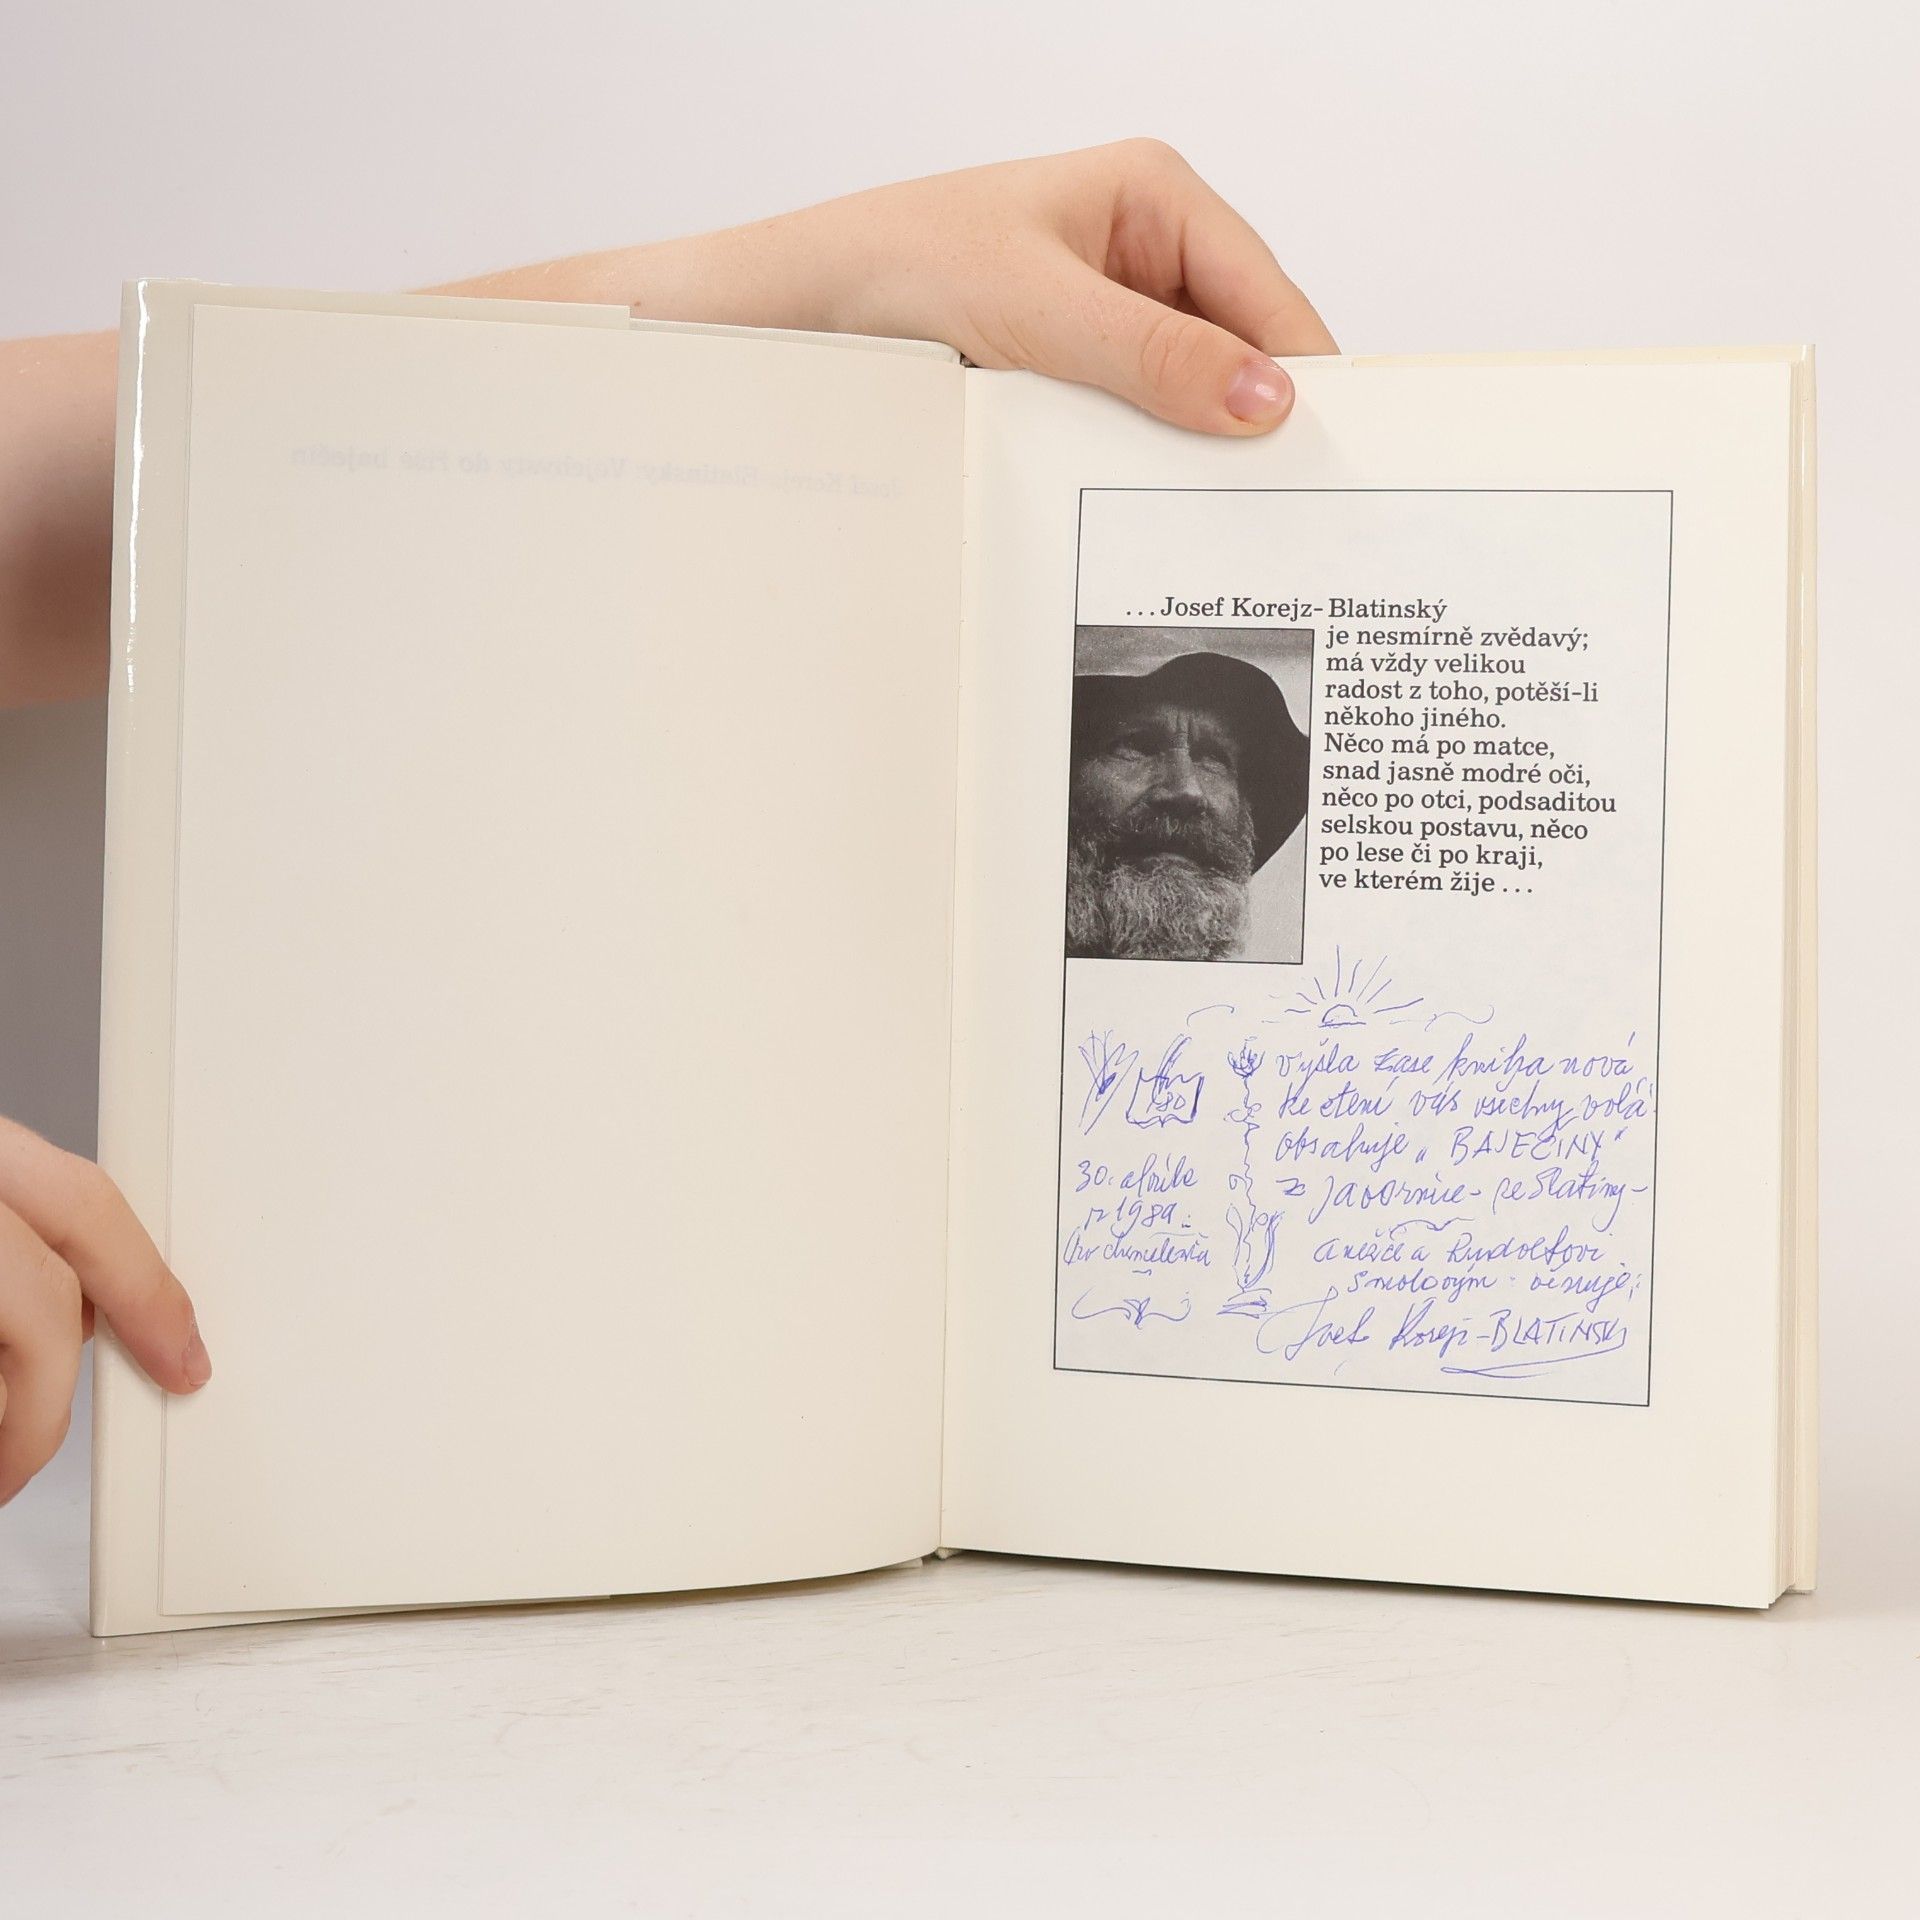 ...Josef Korejz-Blatinský
je nesmírně zvědavý;
má vždy velikou
radost z toho, potěší-li
někoho jiného.
Něco má po matce,
snad jasně modré oči,
něco po otci, podsaditou
selskou postavu, něco
po lese či po kraji,
ve kterém žije...
vyšla zase kniha nová
ke čtení vás všechny volá
obsahuje „BAJEČINY“
z Javornice - ze Slatiny -
Anežce a Rudolfovi
Smolovým věnuje:
Josef Korejz-BLATINSKÝ
30. apríle
r 1989